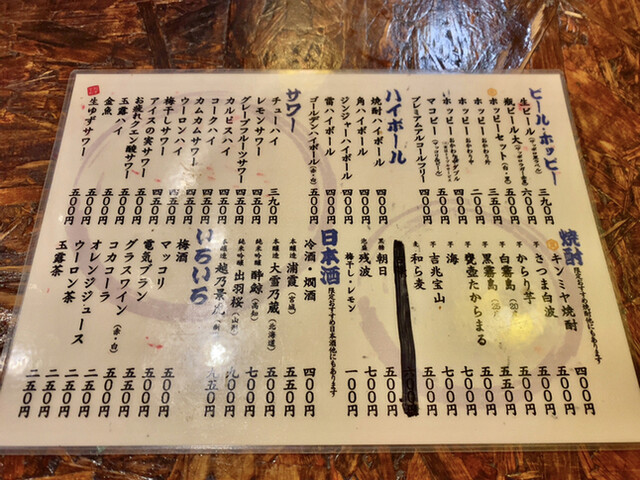 ビール・ホッピー
生ビール 三九〇円
瓶ビール大 六〇〇円
ホッピーセット(白・黒) 五〇〇円
ホッピー おかわり外 三五〇円
ホッピー おかわり中 二〇〇円
ホッピー おかわり中ダブル 四〇〇円
マコピー 五〇〇円
プレミアムアルコールフリー 四〇〇円
ハイボール
焼酎ハイボール 四〇〇円
角ハイボール 四〇〇円
ジンジャーハイボール 四〇〇円
雷ハイボール 四〇〇円
ゴールデンハイボール(金・白) 五〇〇円
サワー
チューハイ 三九〇円
レモンサワー 四五〇円
グレープフルーツサワー 四五〇円
カルピスハイ 四五〇円
コークハイ 四五〇円
カムカムサワー 四五〇円
ウーロンハイ 四五〇円
梅干しサワー 五〇〇円
アイスの実サワー 五〇〇円
お疲れクエン酸サワー 五〇〇円
玉露ハイ 五〇〇円
金魚 五〇〇円
生ゆずサワー 五〇〇円
焼酎 限定おすすめ焼酎他にもあります
キンミヤ焼酎 四〇〇円
芋 さつま白波 五〇〇円
芋 からり芋 五〇〇円
芋 白霧島(20) 五〇〇円
芋 黒霧島(25) 五〇〇円
芋 甕壺たからまる
芋 海 七〇〇円
芋 吉兆宝山
和ら麦
黒糖 朝日 五〇〇円
泡盛 残波 七〇〇円
梅干し・レモン 一〇〇円
日本酒 限定おすすめ日本酒他にもあります
冷酒・燗酒 四〇〇円
本醸造 浦霞(宮城) 五五〇円
本醸造 大雪乃蔵(北海道) 五〇〇円
純米吟醸 酔鯨(高知) 七〇〇円
純米吟醸 出羽桜(山形) 九〇〇円
本醸造 越乃景虎 五五〇円
いろいろ
梅酒
マッコリ 五〇〇円
電気ブラン 五〇〇円
グラスワイン(赤・白) 五〇〇円
コカコーラ 二五〇円
オレンジジュース 二五〇円
ウーロン茶 二五〇円
玉露茶 二五〇円